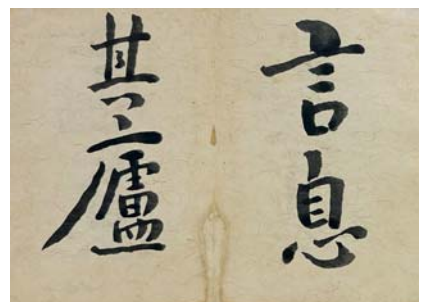 言息
其廬